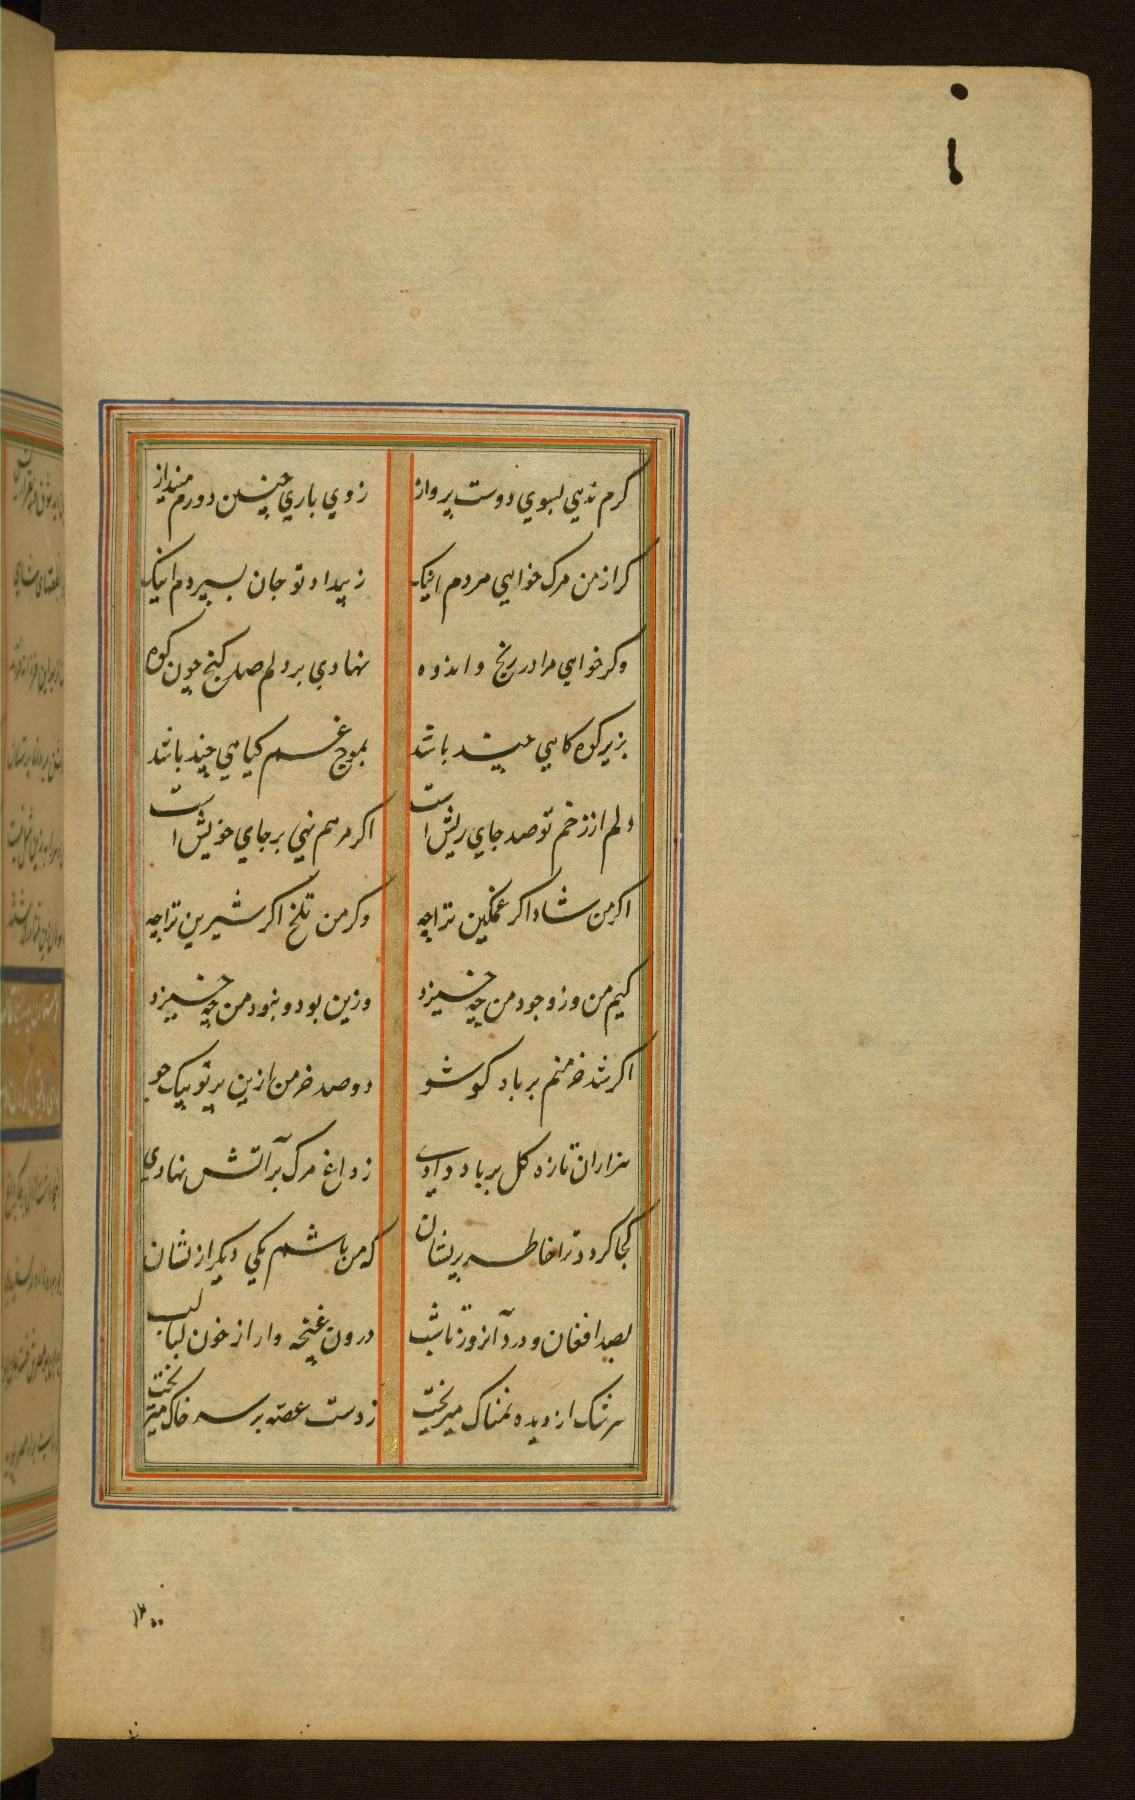 کرم ندهی بسوی دوست پرواز
ز وی باری چنین دورم مینداز
کر از من مرک خواهی مردم اینک
ز بیداد تو جان بسپردم اینک
وکر خواهی مرا در رنج و اندوه
نهادی بر دلم صد کنج چون کوه
بزیر کوه کاهی چند باشد
بموج غم کیاهی چند باشد
دلم از زخم تو صد جای ریش است
اکر مرهم نهی بر جای خویش است
اکر من شاد اکر غمکین ترا چه
وکر من تلخ اکر شیرین ترا چه
کیم من وز وجود من چه خیزد
وزین بود و نبود من چه خیزد
اکر شد خرمنم بر باد کو شو
دو صد خرمن ازین بر تو بیک جو
هزاران تازه کل بر باد دادی
ز داغ مرک بر آتش نهادی
کجا کردد ترا خاطر پریشان
که من باشم یکی دیکر از نشان
بصد افغان و درد آنروز تا شب
درون غنچه وار از خون لبالب
سرشک از دیده نمناک میریخت
ز دست غصه بر سر خاک میریخت